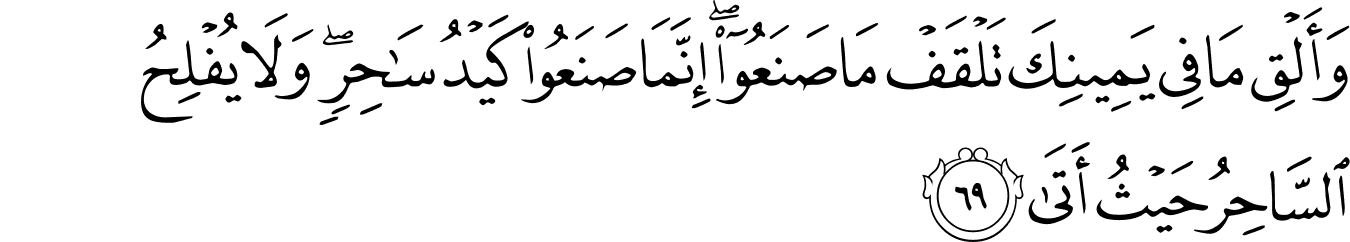 وَأَلْقِ مَا فِي يَمِينِكَ تَلْقَفْ مَا صَنَعُوٓا۟ ۖ إِنَّمَا صَنَعُوا۟ كَيْدُ سَـٰحِرٍ ۖ وَلَا يُفْلِحُ
ٱلسَّاحِرُ حَيْثُ أَتَىٰ ٦٩